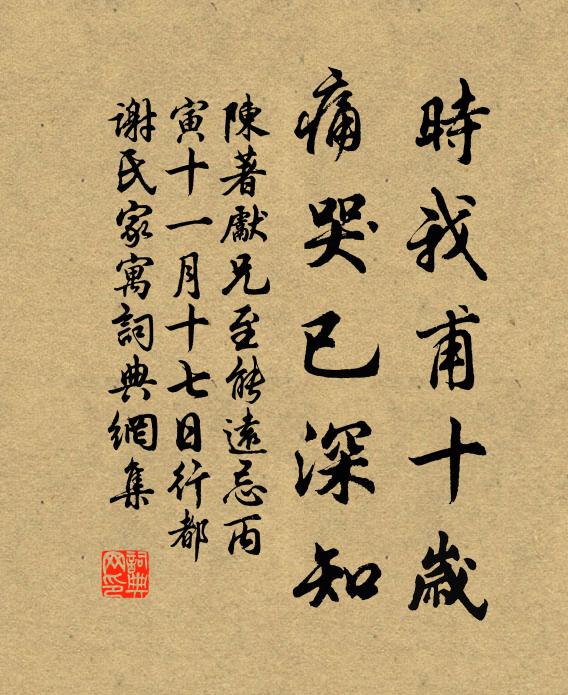 時我甫十歲
痛哭已深知
陳著獻兄至能遠忌丙
寅十一月十七日行都
謝氏家寓詞典網集
詞典网印